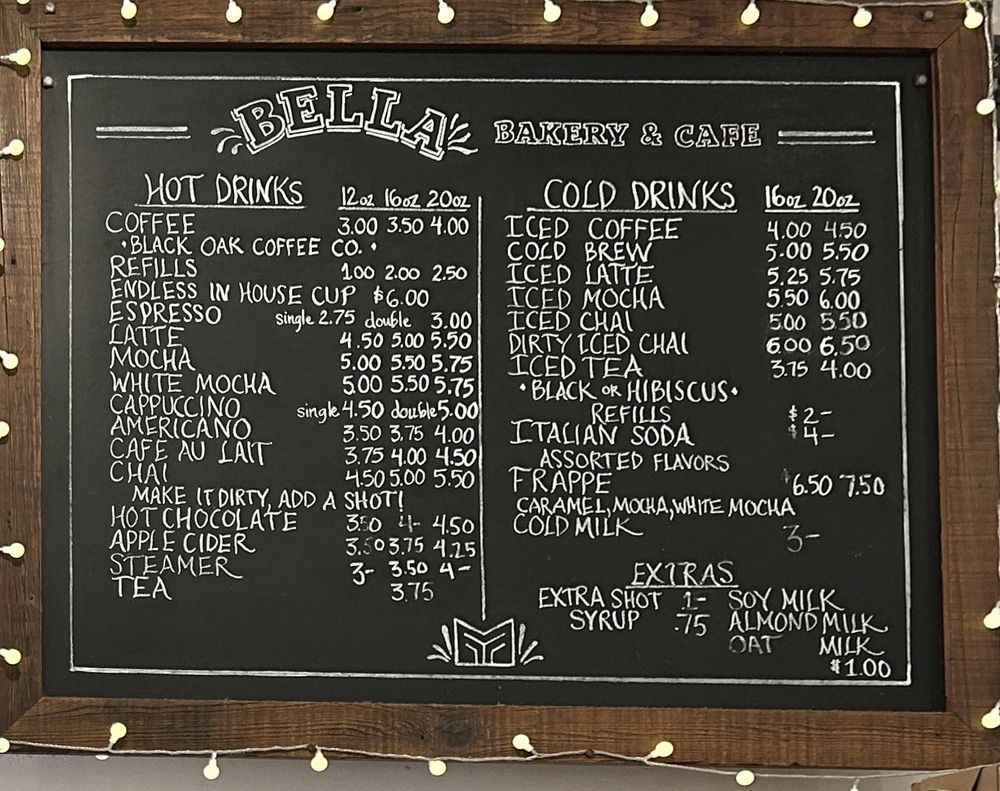 BELLA BAKERY & CAFE
HOT DRINKS 12oz 16oz 20oz
COFFEE 3.00 3.50 4.00
• BLACK OAK COFFEE CO. •
REFILLS 1.00 2.00 2.50
ENDLESS IN HOUSE CUP $6.00
ESPRESSO single 2.75 double 3.00
LATTE 4.50 5.00 5.50
MOCHA 5.00 5.50 5.75
WHITE MOCHA 5.00 5.50 5.75
CAPPUCCINO single 4.50 double 5.00
AMERICANO 3.50 3.75 4.00
CAFE AU LAIT 3.75 4.00 4.50
CHAI 4.50 5.00 5.50
MAKE IT DIRTY, ADD A SHOT!
HOT CHOCOLATE 3.50 4- 4.50
APPLE CIDER 3.50 3.75 4.25
STEAMER 3- 3.50 4-
TEA 3.75
COLD DRINKS 16oz 20oz
ICED COFFEE 4.00 4.50
COLD BREW 5.00 5.50
ICED LATTE 5.25 5.75
ICED MOCHA 5.50 6.00
ICED CHAI 5.00 5.50
DIRTY ICED CHAI 6.00 6.50
ICED TEA 3.75 4.00
• BLACK OR HIBISCUS •
REFILLS $2-
ITALIAN SODA $4-
ASSORTED FLAVORS
FRAPPE $6.50 7.50
CARAMEL, MOCHA, WHITE MOCHA
COLD MILK 3-
EXTRAS
EXTRA SHOT 1- SOY MILK
SYRUP .75 ALMOND MILK
OAT MILK
$1.00